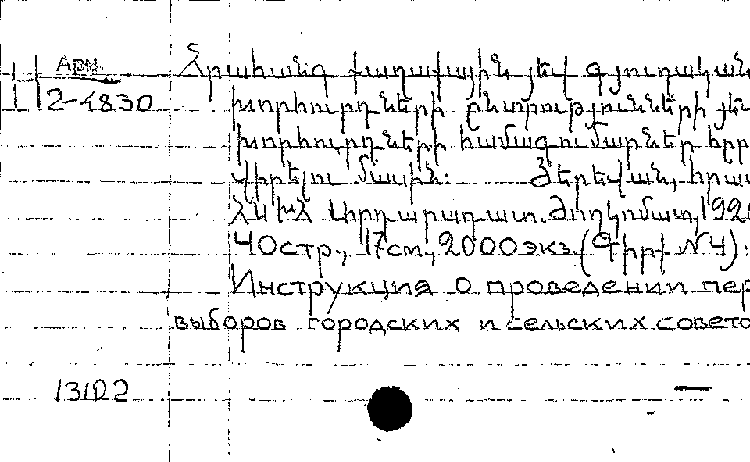 Арм.
2-4830
Հրահանգ քաղաքային յեվ գյուղական
խորհուրդների ընտրությունների յեվ
խորհուրդների համագումարներ հրա
վիրելու մասին: Յերեվան, հրատ
ՀՍԽՀ Արդարադատ. Ժողկոմատ, 192
40стр., 17см., 2000экз. (Գիրք №4):
Инструкция о проведении пер
выборов городских и сельских совето
13102